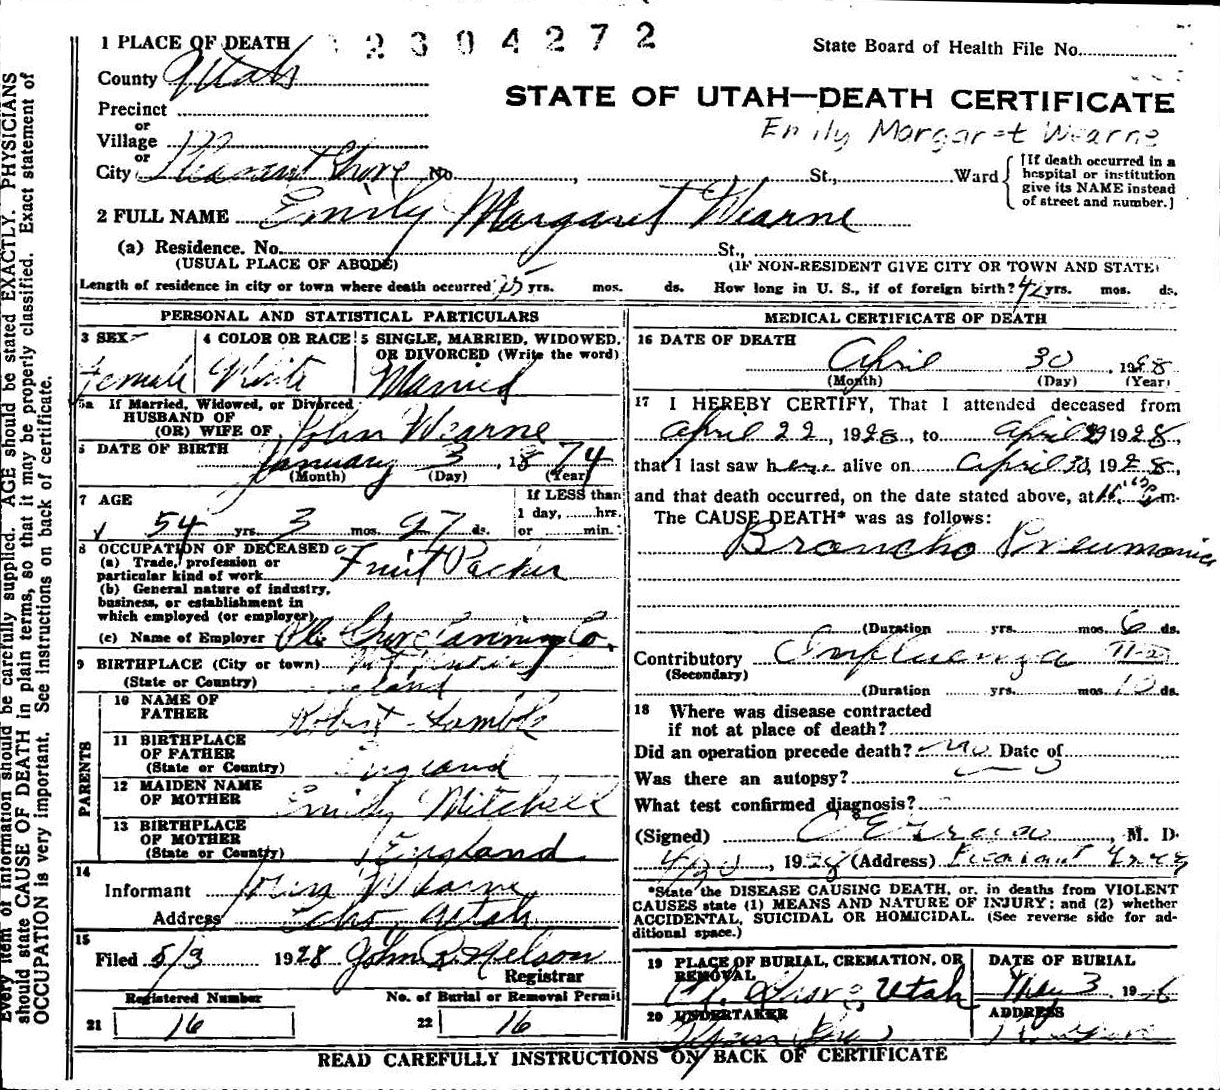 1 PLACE OF DEATH
2304272
State Board of Health File No.
County Utah
STATE OF UTAH—DEATH CERTIFICATE
Precinct
or
Emily Margaret Wearne
Village
or
City Pleasant Grove No. , St., Ward
[If death occurred in a
hospital or institution
give its NAME instead
of street and number.]
2 FULL NAME Emily Margaret Wearne
(a) Residence. No. St.,
(USUAL PLACE OF ABODE)
(IF NON-RESIDENT GIVE CITY OR TOWN AND STATE)
Length of residence in city or town where death occurred yrs. mos. ds. How long in U. S., if of foreign birth? 42 yrs. mos. ds.
PERSONAL AND STATISTICAL PARTICULARS
3 SEX
Female
4 COLOR OR RACE
White
5 SINGLE, MARRIED, WIDOWED,
OR DIVORCED (Write the word)
Married
5a If Married, Widowed, or Divorced
HUSBAND OF
(OR) WIFE OF John Wearne
6 DATE OF BIRTH
January 3, 1874
(Month) (Day) (Year)
7 AGE
54 yrs. 3 mos. 27 ds.
If LESS than
1 day, hrs.
or min.
8 OCCUPATION OF DECEASED
(a) Trade, profession or
particular kind of work Fruit Packer
(b) General nature of industry,
business, or establishment in
which employed (or employer)
(c) Name of Employer Pl. Grove Canning Co.
9 BIRTHPLACE (City or town)
(State or Country) England
PARENTS
10 NAME OF
FATHER Robert
11 BIRTHPLACE
OF FATHER
(State or Country) England
12 MAIDEN NAME
OF MOTHER Emily Mitchell
13 BIRTHPLACE
OF MOTHER
(State or Country) England
14
Informant Wearne
Address Echo, Utah
15
Filed 5/3 1928 John R. Nelson
Registrar
Registered Number
21 16
No. of Burial or Removal Permit
22 16
MEDICAL CERTIFICATE OF DEATH
16 DATE OF DEATH
April 30, 1928
(Month) (Day) (Year)
17 I HEREBY CERTIFY, That I attended deceased from
April 22, 1928, to April 29 1928,
that I last saw her alive on April 30, 1928,
and that death occurred, on the date stated above, at m.
The CAUSE DEATH* was as follows:
Broncho Pneumonia
(Duration yrs. mos. 6 ds.
Contributory Influenza
(Secondary)
(Duration yrs. mos. 10 ds.
18 Where was disease contracted
if not at place of death?
Did an operation precede death? No Date of
Was there an autopsy?
What test confirmed diagnosis?
(Signed) , M. D.
, 1928 (Address) Pleasant Grove
*State the DISEASE CAUSING DEATH, or, in deaths from VIOLENT
CAUSES state (1) MEANS AND NATURE OF INJURY; and (2) whether
ACCIDENTAL, SUICIDAL OR HOMICIDAL. (See reverse side for ad-
ditional space.)
19 PLACE OF BURIAL, CREMATION, OR
REMOVAL
Pl. Grove, Utah
DATE OF BURIAL
May 3, 19
20 UNDERTAKER
ADDRESS
READ CAREFULLY INSTRUCTIONS ON BACK OF CERTIFICATE
Every item of information should be carefully supplied. AGE should be stated EXACTLY. PHYSICIANS
should state CAUSE OF DEATH in plain terms, so that it may be properly classified. Exact statement of
OCCUPATION is very important. See instructions on back of certificate.